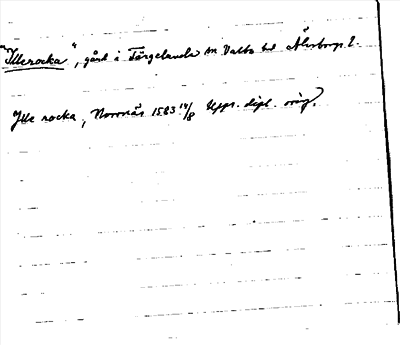 "Illerocka", gård i Färgelanda sn Valbo hd Älvsborgs l.
Jlle rocka, Norrnäs 1563 14/8 Upps. dipl. orig.